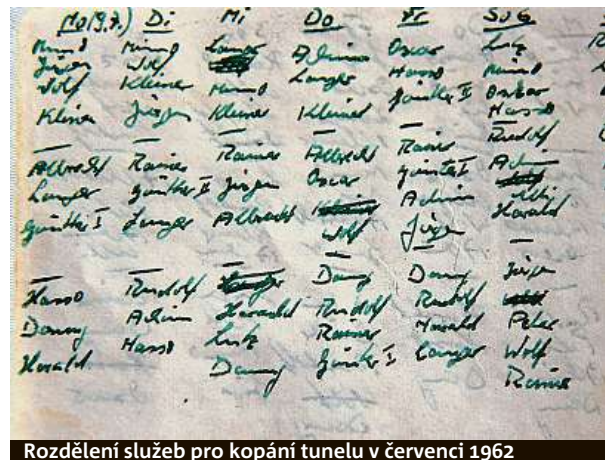 Mo (9.7.) Di Mi Do Fr SoG
Mimo Mimo Langer Achim Oscar Lutz
Jürgen Wolf Langer Hasso Mimo
Wolf Kleiner Mimo Günter II Oskar
Kleiner Jürgen Kleiner Kleiner Hasso
Albrecht Rainer Rainer Albrecht Rainer Rudolf
Langer Günter II Jürgen Oscar Günter I Achim
Günter I Langer Albrecht Achim
Wolf Jürgen Harald
Hasso Rudolf Danny Danny Jürgen
Danny Achim Harald Rudolf Rudolf Peter
Harald Hasso Lutz Rainer Harald Wolf
Danny Günter I Langer Rainer
Rozdělení služeb pro kopání tunelu v červenci 1962